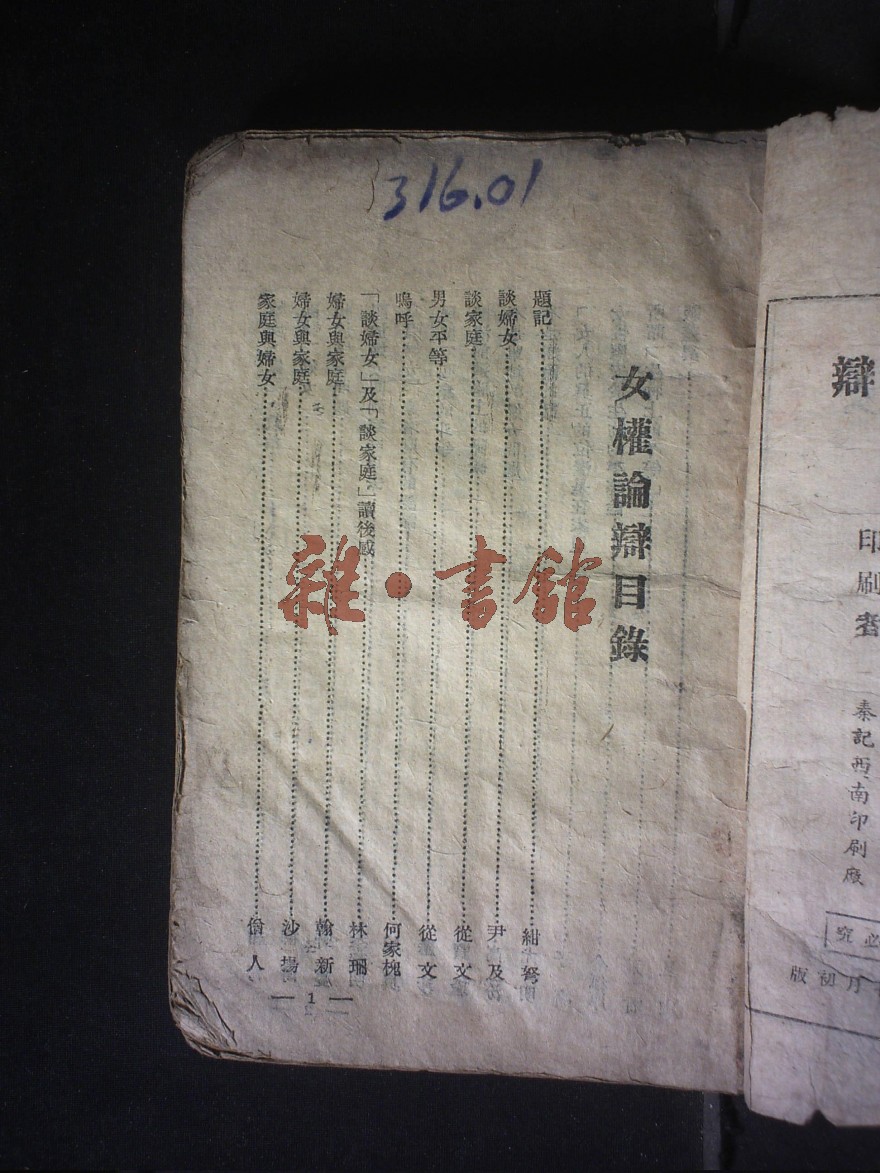 316.01
辯
印刷者 秦記西南印刷廠
必究
月初版
女權論辯目錄
題記……紺弩
談婦女……尹及
談家庭……從文
男女平等……從文
嗚呼……何家槐
「談婦女」及「談家庭」讀後感……林珊
婦女與家庭……翰新
婦女與家庭……沙揚
家庭與婦女……人
— 1 —
雜·書館